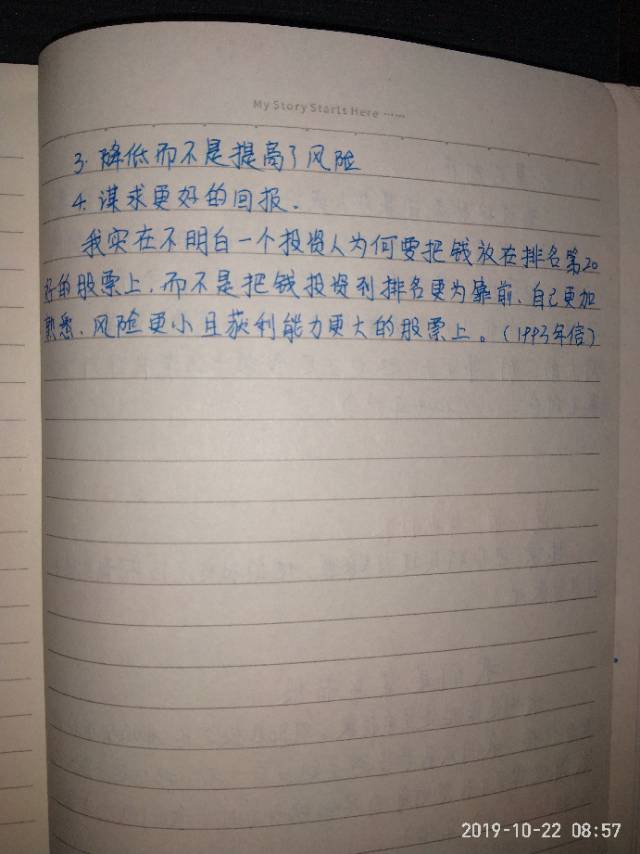 My Story Starts Here ······
3. 降低而不是提高了风险
4. 谋求更好的回报.
我实在不明白一个投资人为何要把钱放在排名第20
好的股票上，而不是把钱投资到排名更为靠前、自己更加
熟悉、风险更小且获利能力更大的股票上。(1993年信)
2019-10-22 08:57